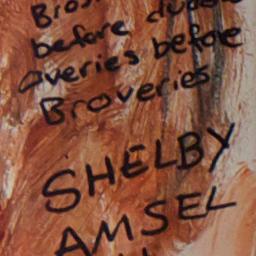 before
overies before
Broveries
SHELBY
AMSEL